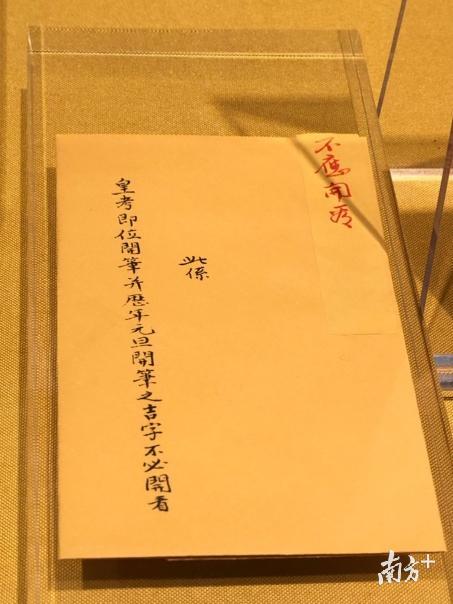 不應開看
此係
皇考即位開筆并歷年元旦開筆之吉字不必開看
南方+